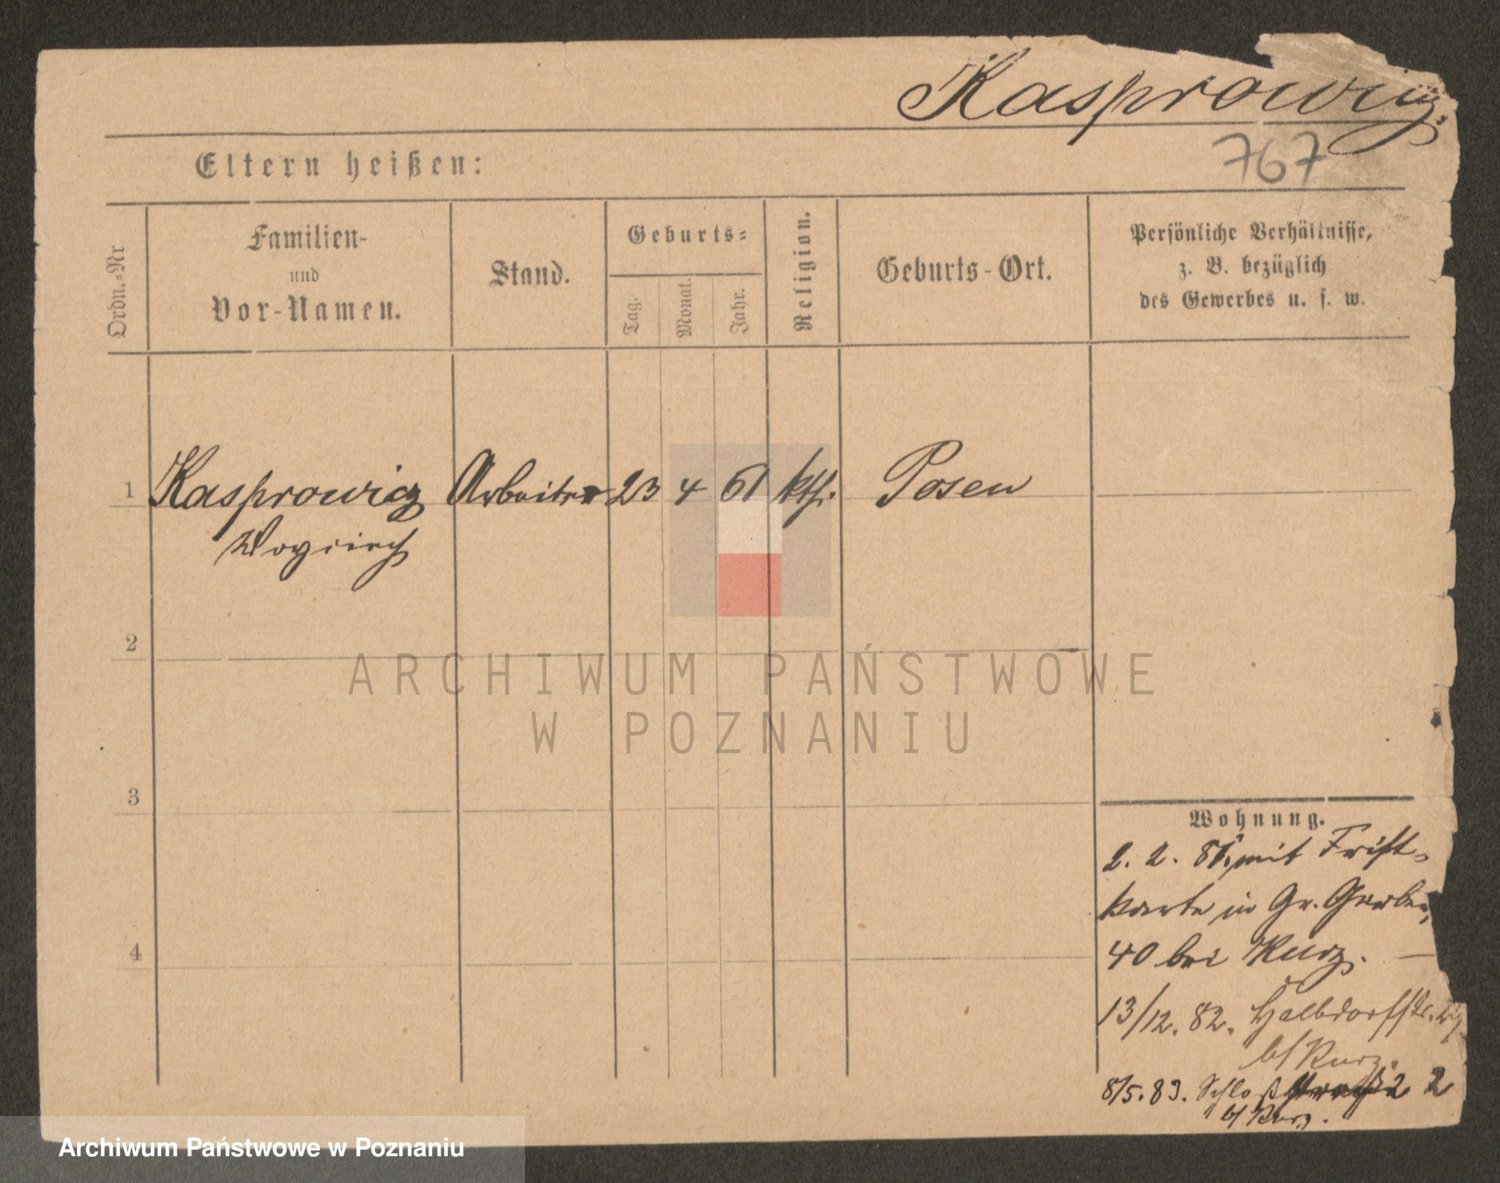 Kasprowicz.
767
Eltern heißen:
Ordn.-Nr
Familien-
und
Vor-Namen.
Stand.
Geburts-
Tag.
Monat.
Jahr.
Religion.
Geburts-Ort.
Persönliche Verhältnisse,
z. B. bezüglich
des Gewerbes u. s. w.
1 Kasprowicz Arbeiter 23 4 61 kth. Posen
Woyciech
2
ARCHIWUM PAŃSTWOWE
W POZNANIU
3
4
Wohnung.
2. 2. 81. mit Frist-
karte in Gr. Gerber,
40 bei Kurz. —
13/12. 82. Halbdorfstr.
b/ Kurz.
8/5. 83. Schloßstraße 2 2
b/ Kurz.
Archiwum Państwowe w Poznaniu